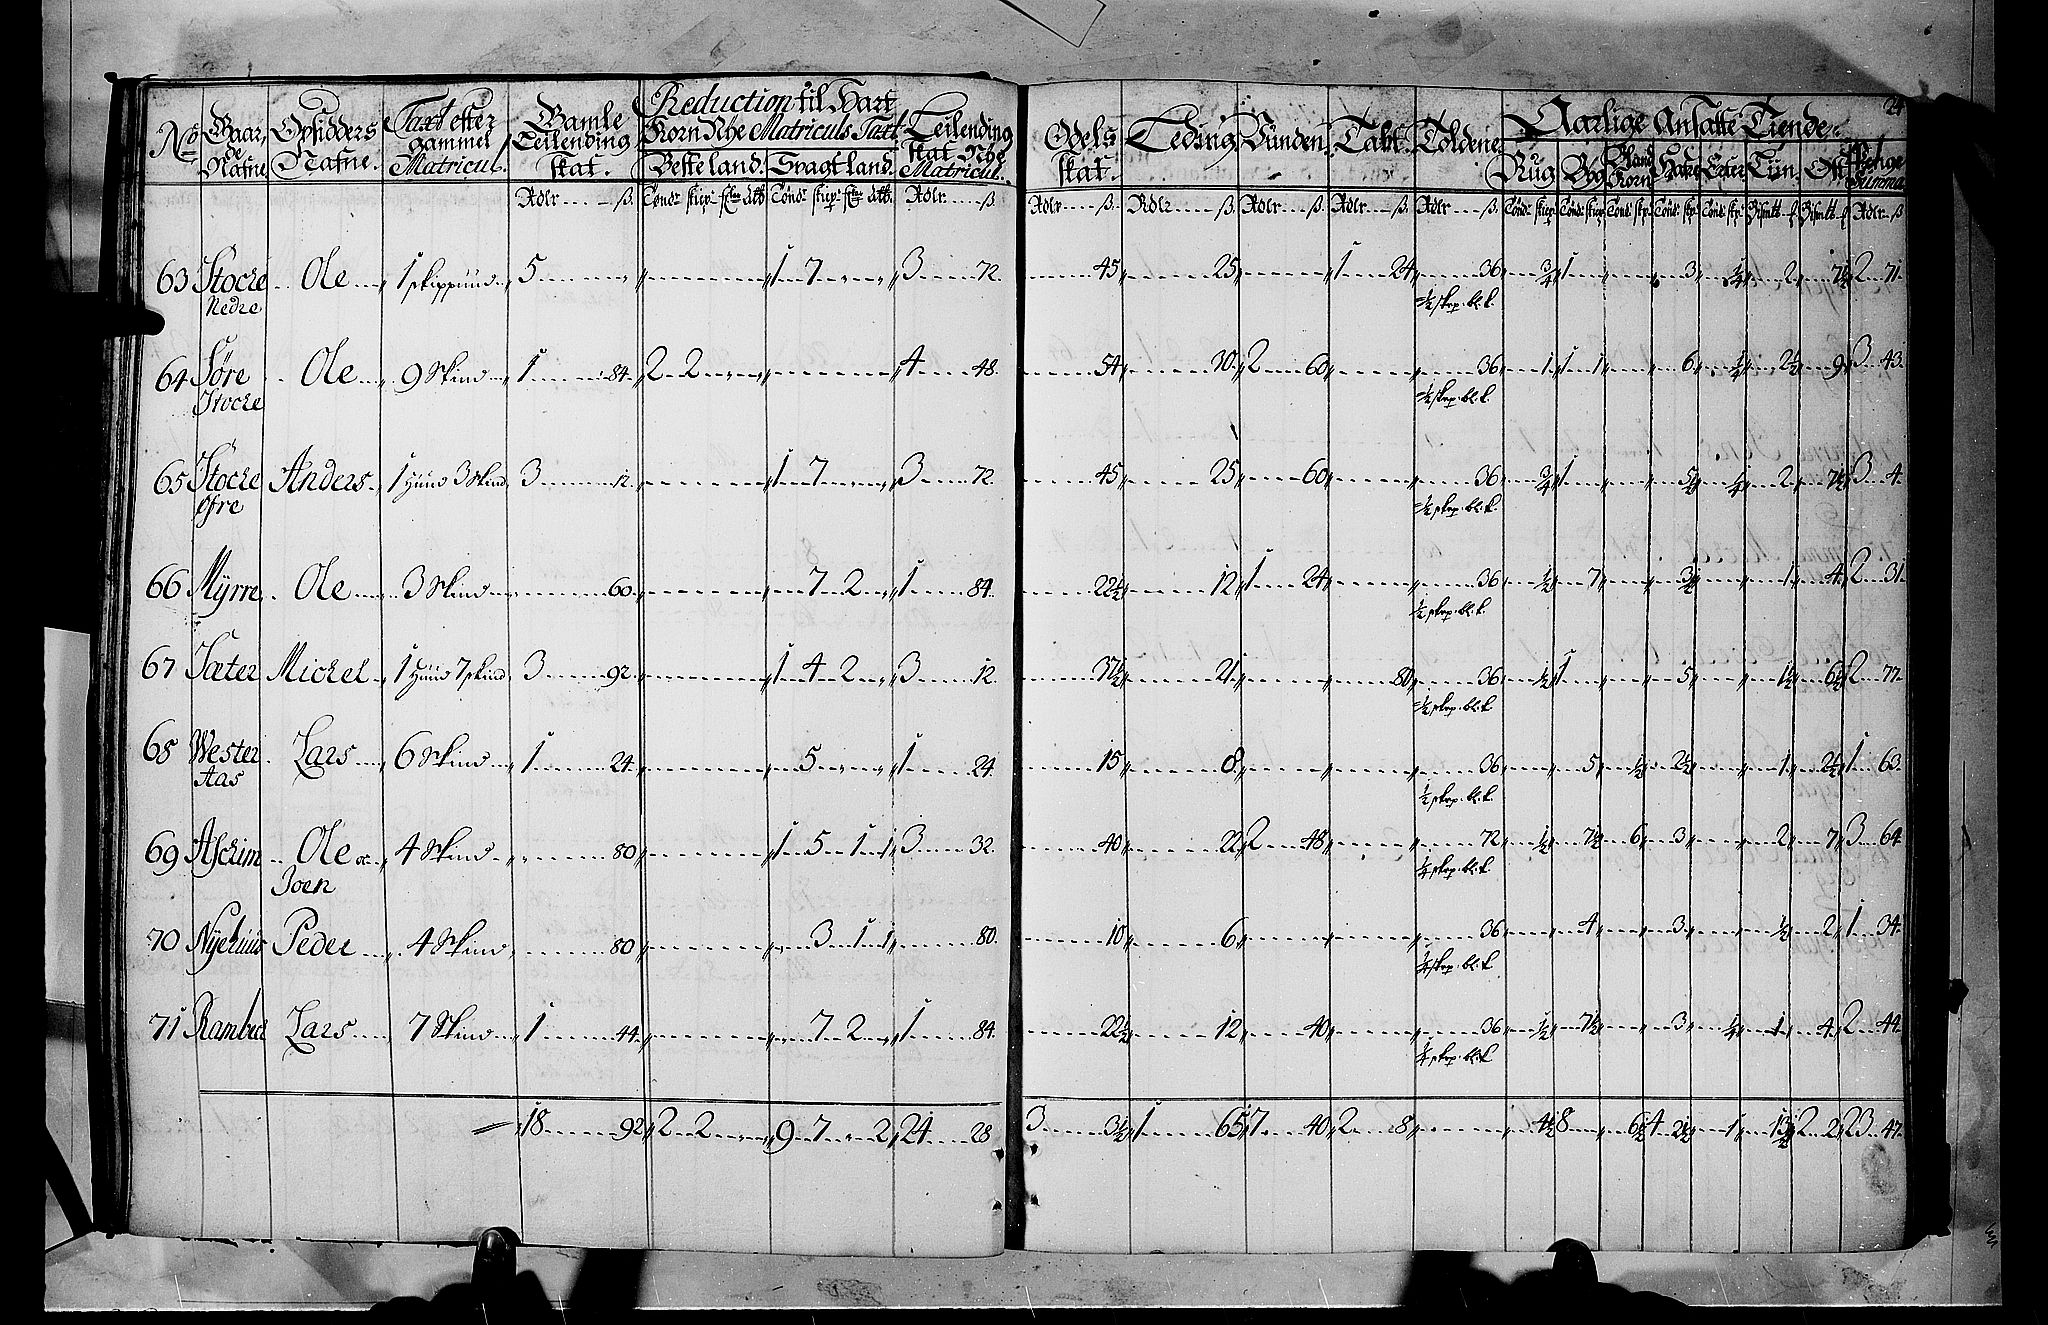 No Gaardenafne Opsidders Nafne. Taxt efter gammel Matricul. Gamle Leilending skat. Reduction til Hart Korn Nÿe Matriculs Taxt Leilending skat Nÿe Matricul.
Beste land. Svagt land.
Rdlr ß. Rdlr ß
Odels skat. Leding Vunden. Aarlige Ansatte Tiende. 24
Rug Byg Bland Korn Havre Erter Penge Summa
Rdlr ß. Rdlr ß. Rdlr ß. Rdlr ß. Rdlr ß. Rdlr ß
63 Stocke Nedre Ole 1 skippund 5 " " 1 7 " " 3 72
45 25 " 1 24 36 3/4 1 " 3 1/4 2 7 1/2 2 71
½ skp. bl. k.
64 Søre Stocke Ole 9 Skind 1 84 2 2 " " " 4 48
54 30 2 60 " 36 1 1 1 6 1/4 2 1/2 9 3 43
½ skp. bl. k.
65 Stocke Øfre Anders 1 Huud 3 Skind 3 12 " 1 7 " " 3 72
45 25 " 60 " 36 3/4 1 " 5 1/2 1/4 2 7 1/2 3 4
½ skp. bl. k.
66 Myrre Ole 3 Skind " 60 " 7 2 " 1 84
22½ 12 1 24 " 36 ½ 7 " 3½ " 1 4 2 31
½ skp. bl. k.
67 Sæter Michel 1 Huud 7 skind 3 92 " 1 4 2 " 3 12
37½ 21 " " 80 36 ½ 1 " 5 " 1½ 6½ 2 77
½ skp. bl. k.
68 Wester Aas Lars 6 Skind 1 24 " 5 " " 1 24
15 8 " " 36 " 5 ½ 2½ " 1 2½ 1 63
½ skp. bl. k.
69 Aschim Ole oc Joen 4 Skind " 80 " 1 5 1 1 3 32
40 22 2 48 " 72 ½ 7½ 6 3 " 2 7 3 64
¼ skp. bl. k.
70 Nÿehuus Peder 4 Skind " 80 " 3 1 1 " 80
10 6 " " 36 " 4 " 3 " ½ 2 1 34
¼ skp. bl. k.
71 Lars 7 Skind 1 44 " 7 2 " 1 84
22½ 12 " 40 " 36 ½ 7½ " 3 ¼ 1 4 2 44
¼ skp. bl. k.
18 92 2 2 " " 9 7 " 2 24 28
3 3½ 1 65 7 40 2 8 " 4½ 8 6½ 4 2½ 1 13½ 2 2 23 47